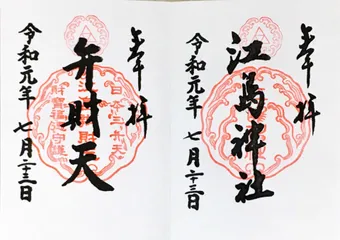 奉拝
江島神社
令和元年 七月二十三日
奉拝
弁財天
令和元年 七月二十三日